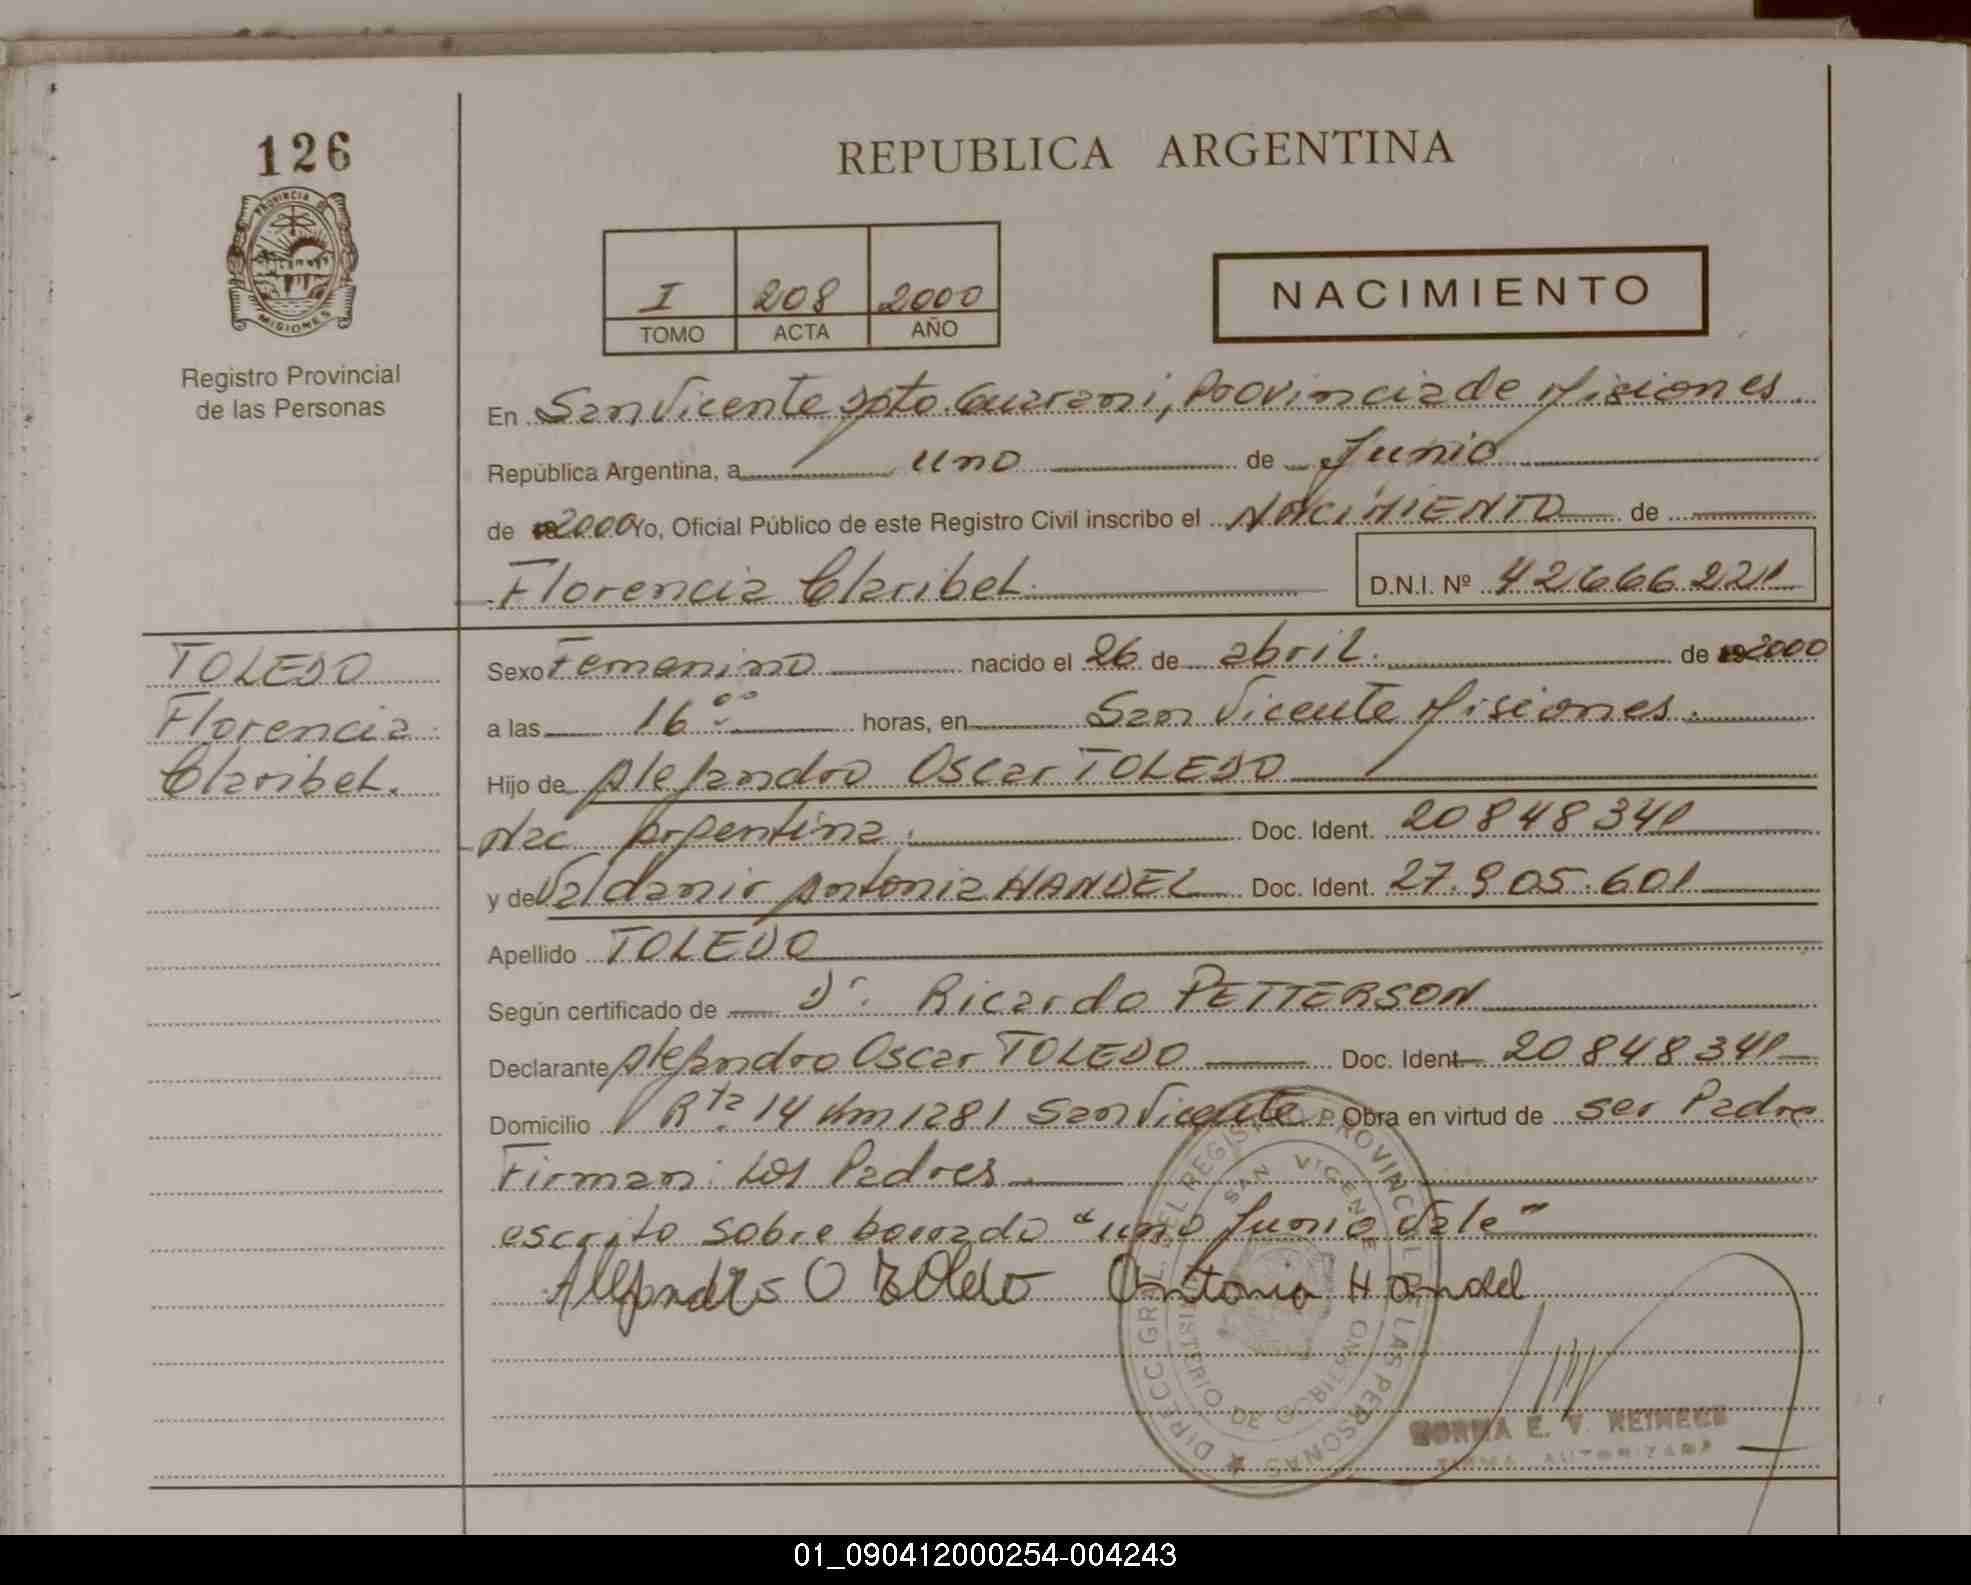 126
PROVINCIA DE
MISIONES
Registro Provincial
de las Personas
REPUBLICA ARGENTINA
I 208 2000
TOMO ACTA AÑO
NACIMIENTO
En San Vicente Dpto. Guarani, Provincia de Misiones.
República Argentina, a uno de Junio
de 2000 Yo, Oficial Público de este Registro Civil inscribo el NACIMIENTO de
Florencia Claribel. D.N.I. Nº 42.666.221
TOLEDO
Florencia
Claribel.
Sexo Femenino nacido el 26 de abril. de 2000
a las 16:00 horas, en San Vicente Misiones.
Hijo de Alejandro Oscar TOLEDO
Nac. Argentina. Doc. Ident. 20848341
y de Valdanir Antonia HANDEL Doc. Ident. 27.905.601
Apellido TOLEDO
Según certificado de Dr. Ricardo PETTERSON
Declarante Alejandro Oscar TOLEDO Doc. Ident 20848341
Domicilio Rta. 14 Km 1281 San Vicente. Obra en virtud de ser Padre
Firman: Los Padres.
escrito sobre borrado "uno Junio Vale"
Alejandro O Toledo Antonia Handel
DIRECC. GRAL. DEL REGISTRO PROVINCIAL DE LAS PERSONAS
SAN VICENTE
MINISTERIO DE GOBIERNO
NORMA E. V. REINECK
FIRMA AUTORIZADA
01_090412000254-004243